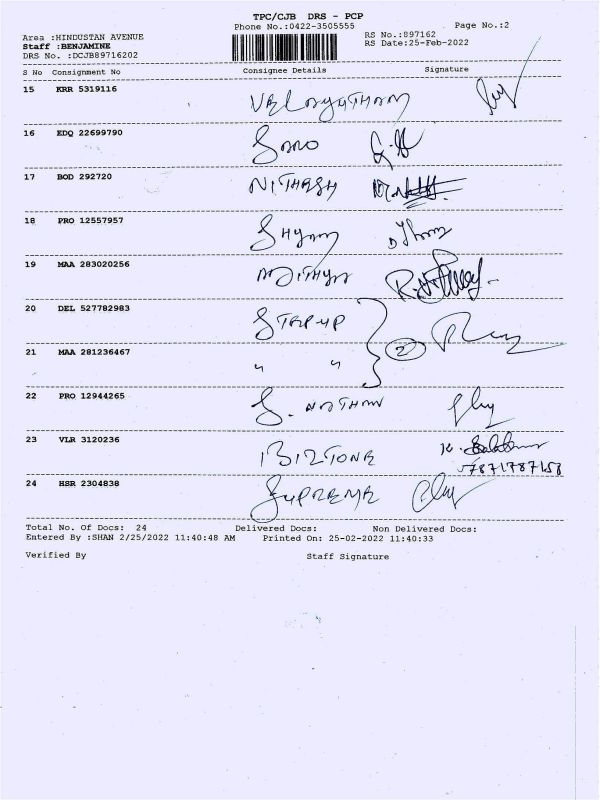 TPC/CJB DRS - PCP
Phone No.:0422-3505555 Page No.:2
Area :HINDUSTAN AVENUE RS No.:897162
Staff :BENJAMINE RS Date:25-Feb-2022
DRS No. :DCJB89716202
S No Consignment No Consignee Details Signature
15 KRR 5319116 VELAYUTHAM
16 EDQ 22699790
17 BOD 292720 NITHESH
18 PRO 12557957 SHYAM
19 MAA 283020256
20 DEL 527782983 STEP-UP
21 MAA 281236467 " " 2
22 PRO 12944265 S. NATHAN
23 VLR 3120236 BIZTONE
7871787158
24 HSR 2304838 SUPREME
Total No. Of Docs: 24 Delivered Docs: Non Delivered Docs:
Entered By :SHAN 2/25/2022 11:40:48 AM Printed On: 25-02-2022 11:40:33
Verified By Staff Signature